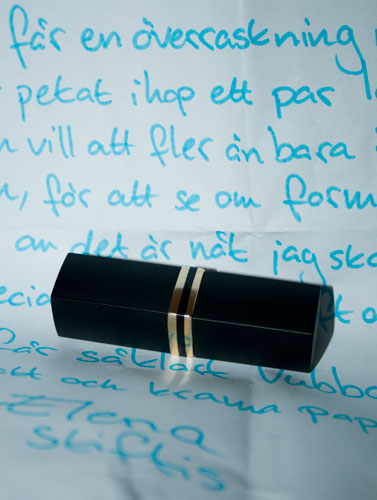 får en överraskning
petat ihop ett par
vill att fler än bara
, för att se om form
an det är nåt jag ska
får såklart bubba
ott och krama pap
Elena
skiftis